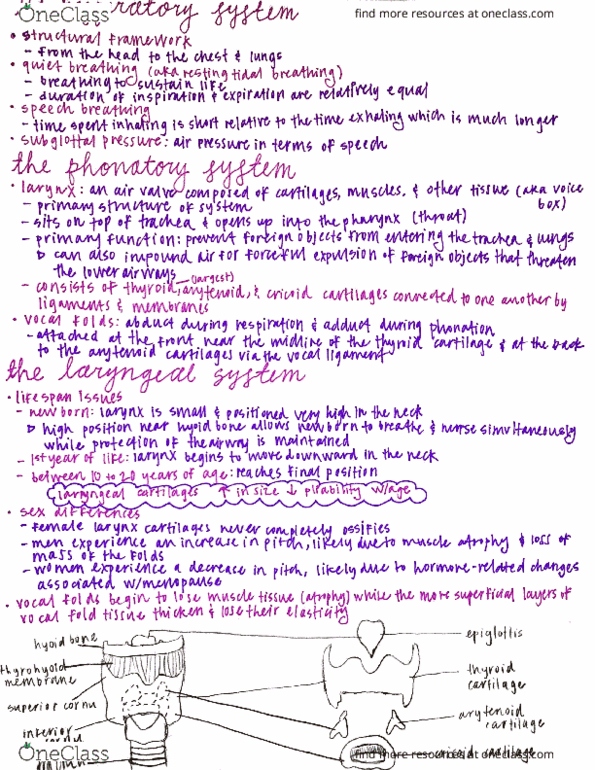 OneClass
find more resources at oneclass.com
ratory system
• structural framework
– from the head to the chest & lungs
• quiet breathing (aka resting tidal breathing)
– breathing to sustain life
– duration of inspiration & expiration are relatively equal
• speech breathing
– time spent inhaling is short relative to the time exhaling which is much longer
• subglottal pressure: air pressure in terms of speech
the phonatory system
• larynx: an air valve composed of cartilages, muscles, & other tissue (aka voice
box)
– primary structure of system
– sits on top of trachea & opens up into the pharynx (throat)
– primary function: prevent foreign objects from entering the trachea & lungs
▷ can also impound air for forceful expulsion of foreign objects that threaten
the lower airways
(largest)
– consists of thyroid, arytenoid, & cricoid cartilages connected to one another by
ligaments & membranes
• vocal folds: abduct during respiration & adduct during phonation
– attached at the front near the midline of the thyroid cartilage & at the back
to the arytenoid cartilages via the vocal ligament
the laryngeal system
• lifespan issues
– newborn: larynx is small & positioned very high in the neck
▷ high position near hyoid bone allows newborn to breathe & nurse simultaneously
while protection of the airway is maintained
– 1st year of life: larynx begins to move downward in the neck
– between 10 to 20 years of age: reaches final position
laryngeal cartilages ↑ in size ↓ pliability w/age
• sex differences
– female larynx cartilages never completely ossifies
– men experience an increase in pitch, likely due to muscle atrophy & loss of
mass of the folds
– women experience a decrease in pitch, likely due to hormone-related changes
associated w/menopause
• vocal folds begin to lose muscle tissue (atrophy) while the more superficial layers of
vocal fold tissue thicken & lose their elasticity
hyoid bone
epiglottis
thyrohyoid
membrane
thyroid
cartilage
superior cornu
arytenoid
cartilage
inferior
cornu
cricoid cartilage
OneClass
find more resources at oneclass.com